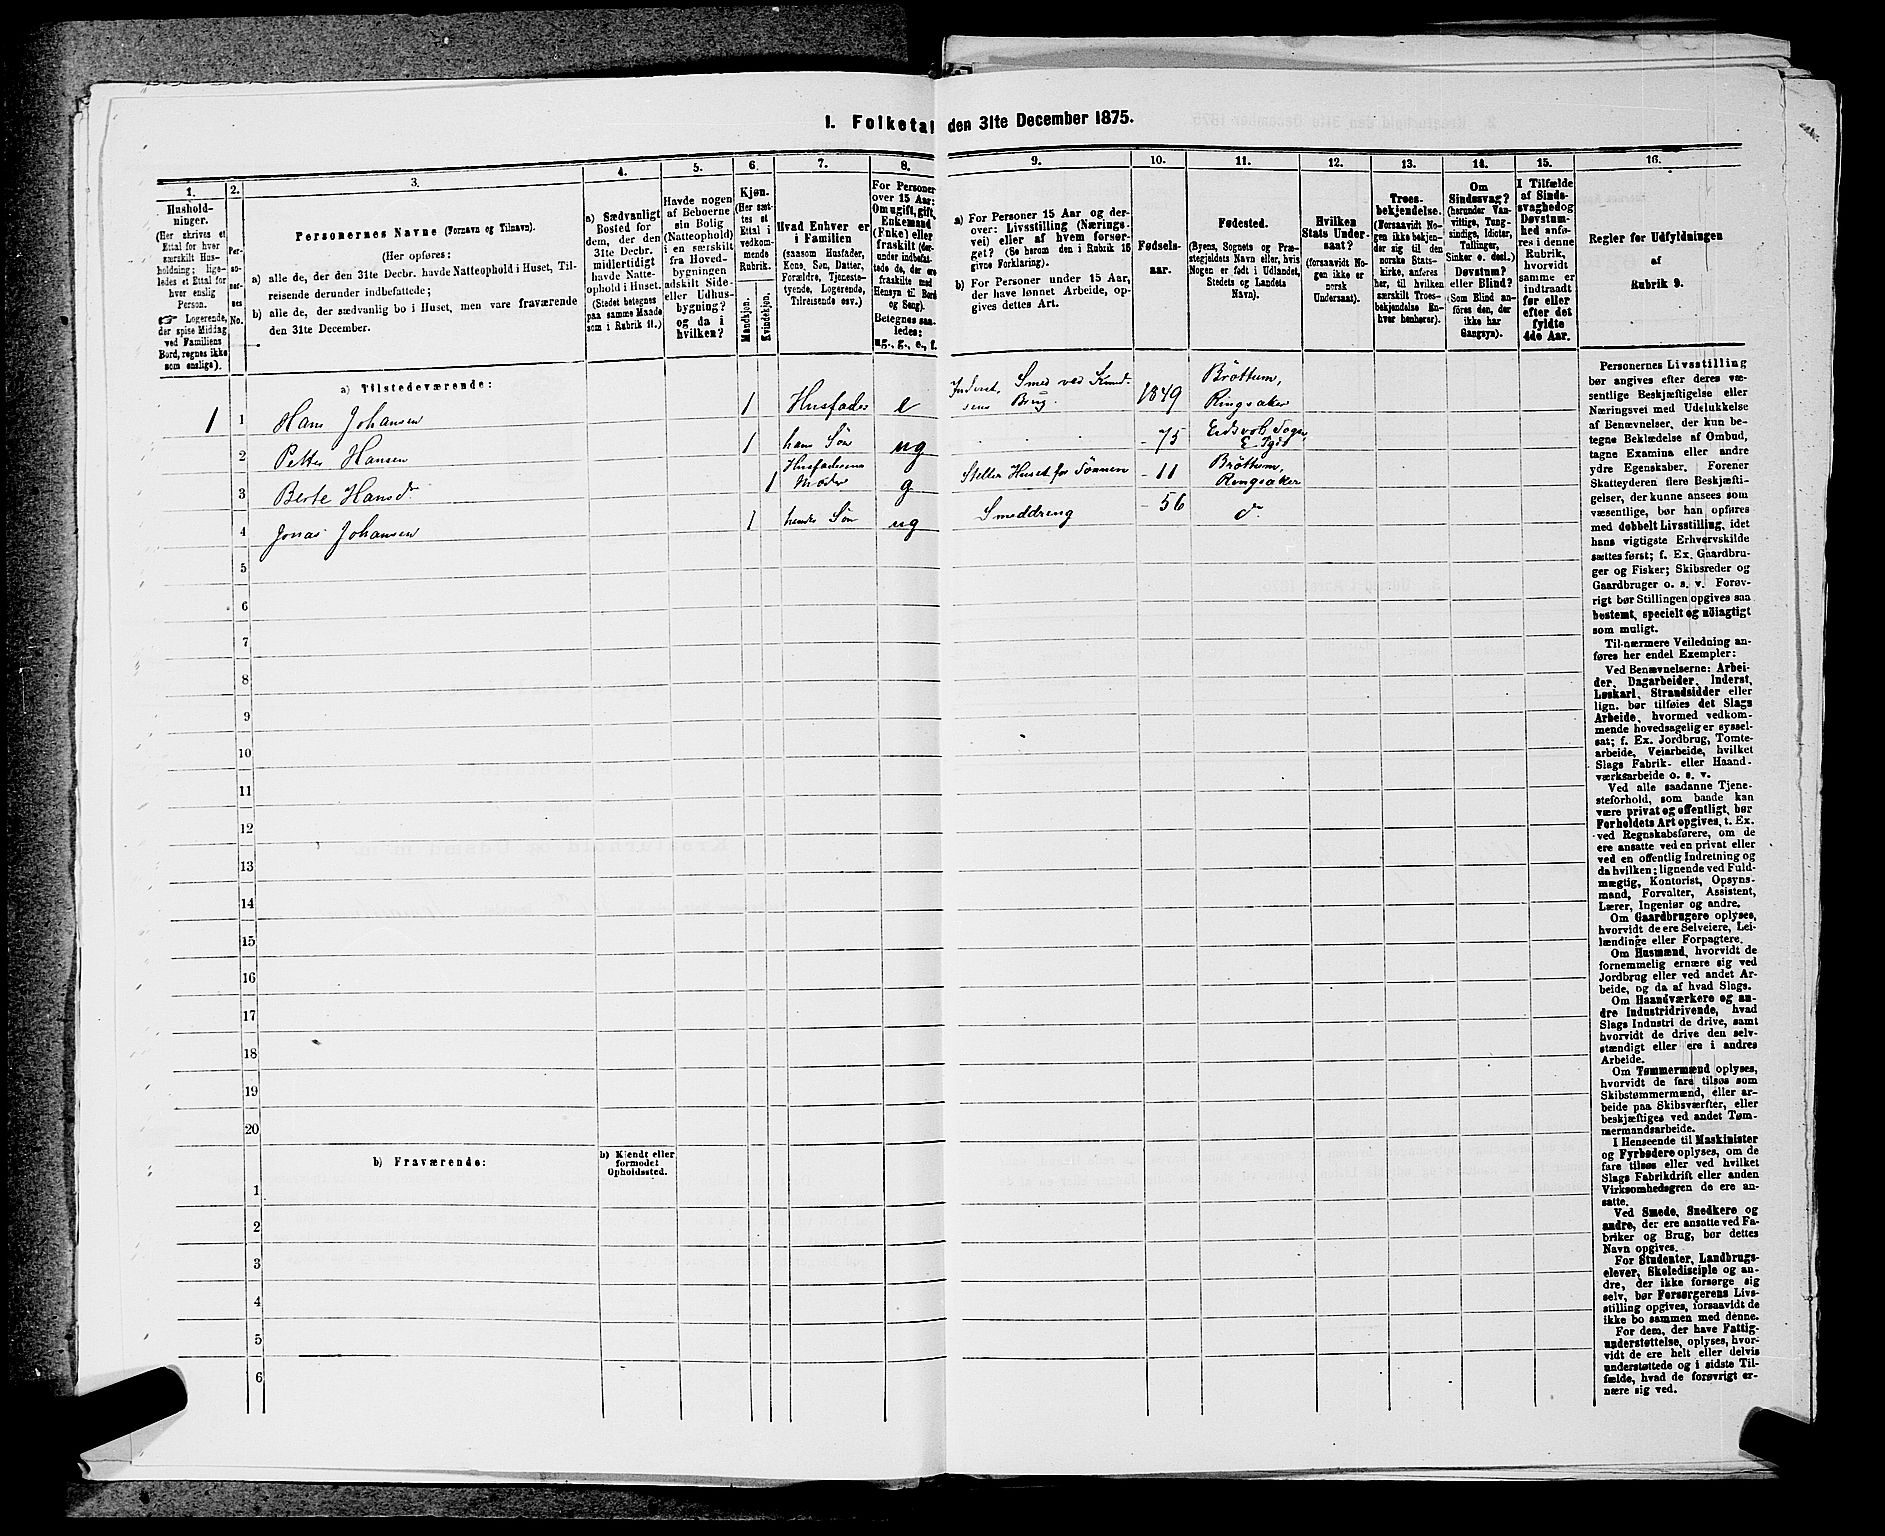 1. Folketal den 31te December 1875.
1.
2.
3.
4.
5.
6.
7.
8.
9.
10.
11.
12.
13.
14.
15.
16.
Hushold-
ninger.
(Her skrives et
Ettal for hver
særskilt Hus-
holdning; lige-
ledes et Ettal for
hver enslig
Person.
☞ Logerende,
der spise Middag
ved Familiens
Bord, regnes ikke
som enslige).
Per-
so-
ner-
nes
No.
Personernes Navne (Fornavn og Tilnavn).
(Her opføres:
a) alle de, der den 31te Decbr. havde Natteophold i Huset, Til-
reisende derunder indbefattede;
b) alle de, der sædvanlig bo i Huset, men vare fraværende
den 31te December.
a) Sædvanligt
Bosted for
dem, der den
31te Decbr.
midlertidigt
havde Natte-
ophold i Huset.
(Stedet betegnes
paa samme Maade
som i Rubrik 11.)
Havde nogen
af Beboerne
sin Bolig
(Natteophold)
i en særskilt
fra Hoved-
bygningen
adskilt Side-
eller Udhus-
bygning?
og da i
hvilken?
Kjøn.
(Her sæt-
tes et
Ettal i
vedkom-
mende
Rubrik.
Mandkjøn.
Kvindekjøn.
Hvad Enhver er
i Familien
(saasom Husfader,
Kone, Søn, Datter,
Forældre, Tjeneste-
tyende, Logerende,
Tilreisende osv.)
For Personer
over 15 Aar:
Om ugift, gift,
Enkemand
(Enke) eller
fraskilt (der-
under indbefat-
tede de, der ere
fraskilte med
Hensyn til Bord
og Seng).
Betegnes saa-
ledes:
ug., g., e., f.
a) For Personer 15 Aar og der-
over: Livsstilling (Nærings-
vei) eller af hvem forsør-
get? (Se herom den i Rubrik 16
givne Forklaring).
b) For Personer under 15 Aar,
der have lønnet Arbeide, op-
gives dettes Art.
Fødsels-
aar.
Fødested.
(Byens, Sognets og Præ-
stegjeldets Navn eller, hvis
Nogen er født i Udlandet,
Stedets og Landets
Navn).
Hvilken
Stats Under-
saat?
(forsaavidt No-
gen ikke er
norsk
Undersaat).
Troes-
bekjendelse.
(Forsaavidt No-
gen ikke bekjen-
der sig til den
norske Stats-
kirke, anføres
her, til hvilken
særskilt Troes-
bekjendelse En-
hver henhører).
Om
Sindssvag?
(herunder Van-
vittige, Tung-
sindige, Idioter,
Tullinger,
Sinker o. desl.)
Døvstum?
eller Blind?
(Som Blind an-
føres den, der
ikke har
Gangsyn).
I Tilfælde
af Sinds-
svaghed og
Døvstum-
hed anføres
i denne
Rubrik,
hvorvidt
samme er
indtraadt
før eller
efter det
fyldte
4de Aar.
Regler for Udfyldningen
af
Rubrik 9.
a) Tilstedeværende:
1 1 Hans Johansen 1 Husfader e Inderst, Smed ved Knud-
sens Brug. 1849 Bröttum,
Ringsaker
2 Petter Hansen 1 hans Sön ug - 75 Eidsvold Sogn,
E. Pgld
3 Berte Hansd. 1 Husfaderens
Moder g Steller Huset for Sønnen - 11 Bröttum,
Ringsaker
4 Jonas Johansen 1 hendes Sön ug Smeddreng - 56 do
5
6
7
8
9
10
11
12
13
14
15
16
17
18
19
20
b) Fraværende:
b) Kjendt eller
formodet
Opholdssted.
1
2
3
4
5
6
Personernes Livsstilling
bør angives efter deres væ-
sentlige Beskjæftigelse eller
Næringsvei med Udelukkelse
af Benævnelser, der kun be-
tegne Beklædelse af Ombud,
tagne Examina eller andre
ydre Egenskaber. Forener
Skatteyderen flere Beskjæfti-
gelser, der kunne ansees som
væsentlige, bør han opføres
med dobbelt Livsstilling, idet
hans vigtigste Erhvervskilde
sættes først; f. Ex. Gaardbru-
ger og Fisker; Skibsreder og
Gaardbruger o. s. v. Forøv-
rigt bør Stillingen opgives saa
bestemt, specielt og nöiagtigt
som muligt.
Til nærmere Veiledning an-
føres her endel Exempler:
Ved Benævnelserne: Arbei-
der, Dagarbeider, Inderst,
Løskarl, Strandsidder eller
lign. bør tilføies det Slags
Arbeide, hvormed vedkom-
mende hovedsagelig er syssel-
sat; f. Ex. Jordbrug, Tomte-
arbeide, Veiarbeide, hvilket
Slags Fabrik- eller Haand-
værksarbeide o. s. v.
Ved alle saadanne Tjene-
steforhold, som baade kan
være privat og offentligt, bør
Forholdets Art opgives, t. Ex.
ved Regnskabsførere, om de
ere ansatte ved en privat eller
ved en offentlig Indretning og
da hvilken; lignende ved Fuld-
mægtig, Kontorist, Opsyns-
mand, Forvalter, Assistent,
Lærer, Ingeniør og andre.
Om Gaardbrugere oplyses,
hvorvidt de ere Selveiere, Lei-
lændinge eller Forpagtere.
Om Husmænd, hvorvidt de
fornemmelig ernære sig ved
Jordbrug eller ved andet Ar-
beide, og da af hvad Slags.
Om Haandværkere og an-
dre Industridrivende, hvad
Slags Industri de drive, samt
hvorvidt de drive den selv-
stændigt eller ere i andres
Arbeide.
Om Tømmermænd oplyses,
hvorvidt de fare tilsøs som
Skibstømmermænd, eller ar-
beide paa Skibsværfter, eller
beskjæftiges ved andet Tøm-
mermandsarbeide.
I Henseende til Maskinister
og Fyrbødere oplyses, om de
fare tilsøs eller ved hvilket
Slags Fabrikdrift eller anden
Virksomhedsgren de ere an-
satte.
Ved Smede, Snedkere og
andre, der ere ansatte ved Fa-
briker og Brug, bør dettes
Navn opgives.
For Studenter, Landbrugs-
elever, Skoledisciple og an-
dre, der ikke forsørge sig
selv, bør Forsørgerens Livs-
stilling opgives, forsaavidt de
ikke bo sammen med denne.
For dem, der have Fattig-
understøttelse, oplyses, hvor-
vidt de ere helt eller delvis
understøttede og i sidste Til-
fælde, hvad de forøvrigt er-
nære sig ved.